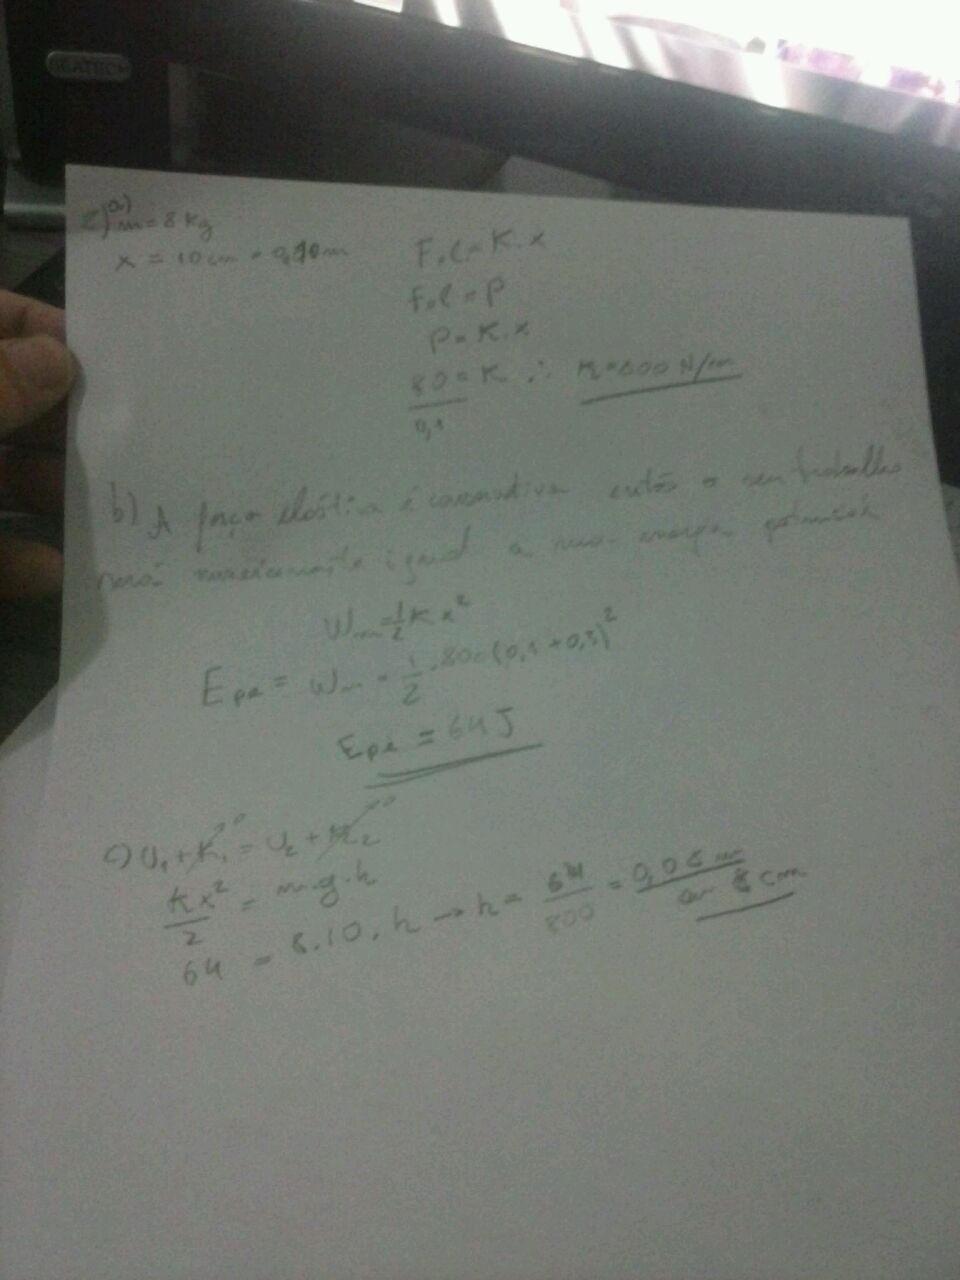 2) a)
m = 8 Kg
x = 10 cm = 0,10 m
Fel = K.x
Fel = P
P = K.x
80/0,1 = K ∴ K = 800 N/m
b) A força elástica é conservativa então o seu trabalho
será numericamente igual a sua energia potencial
Wm = 1/2 K x²
Epe = Wm = 1/2 . 800 (0,1 + 0,3)²
Epe = 64 J
c) U₁ + K₁ = U₂ + K₂
Kx²/2 = m.g.h
64 = 8.10.h → h = 64/800 = 0,08 m
ou 8 cm